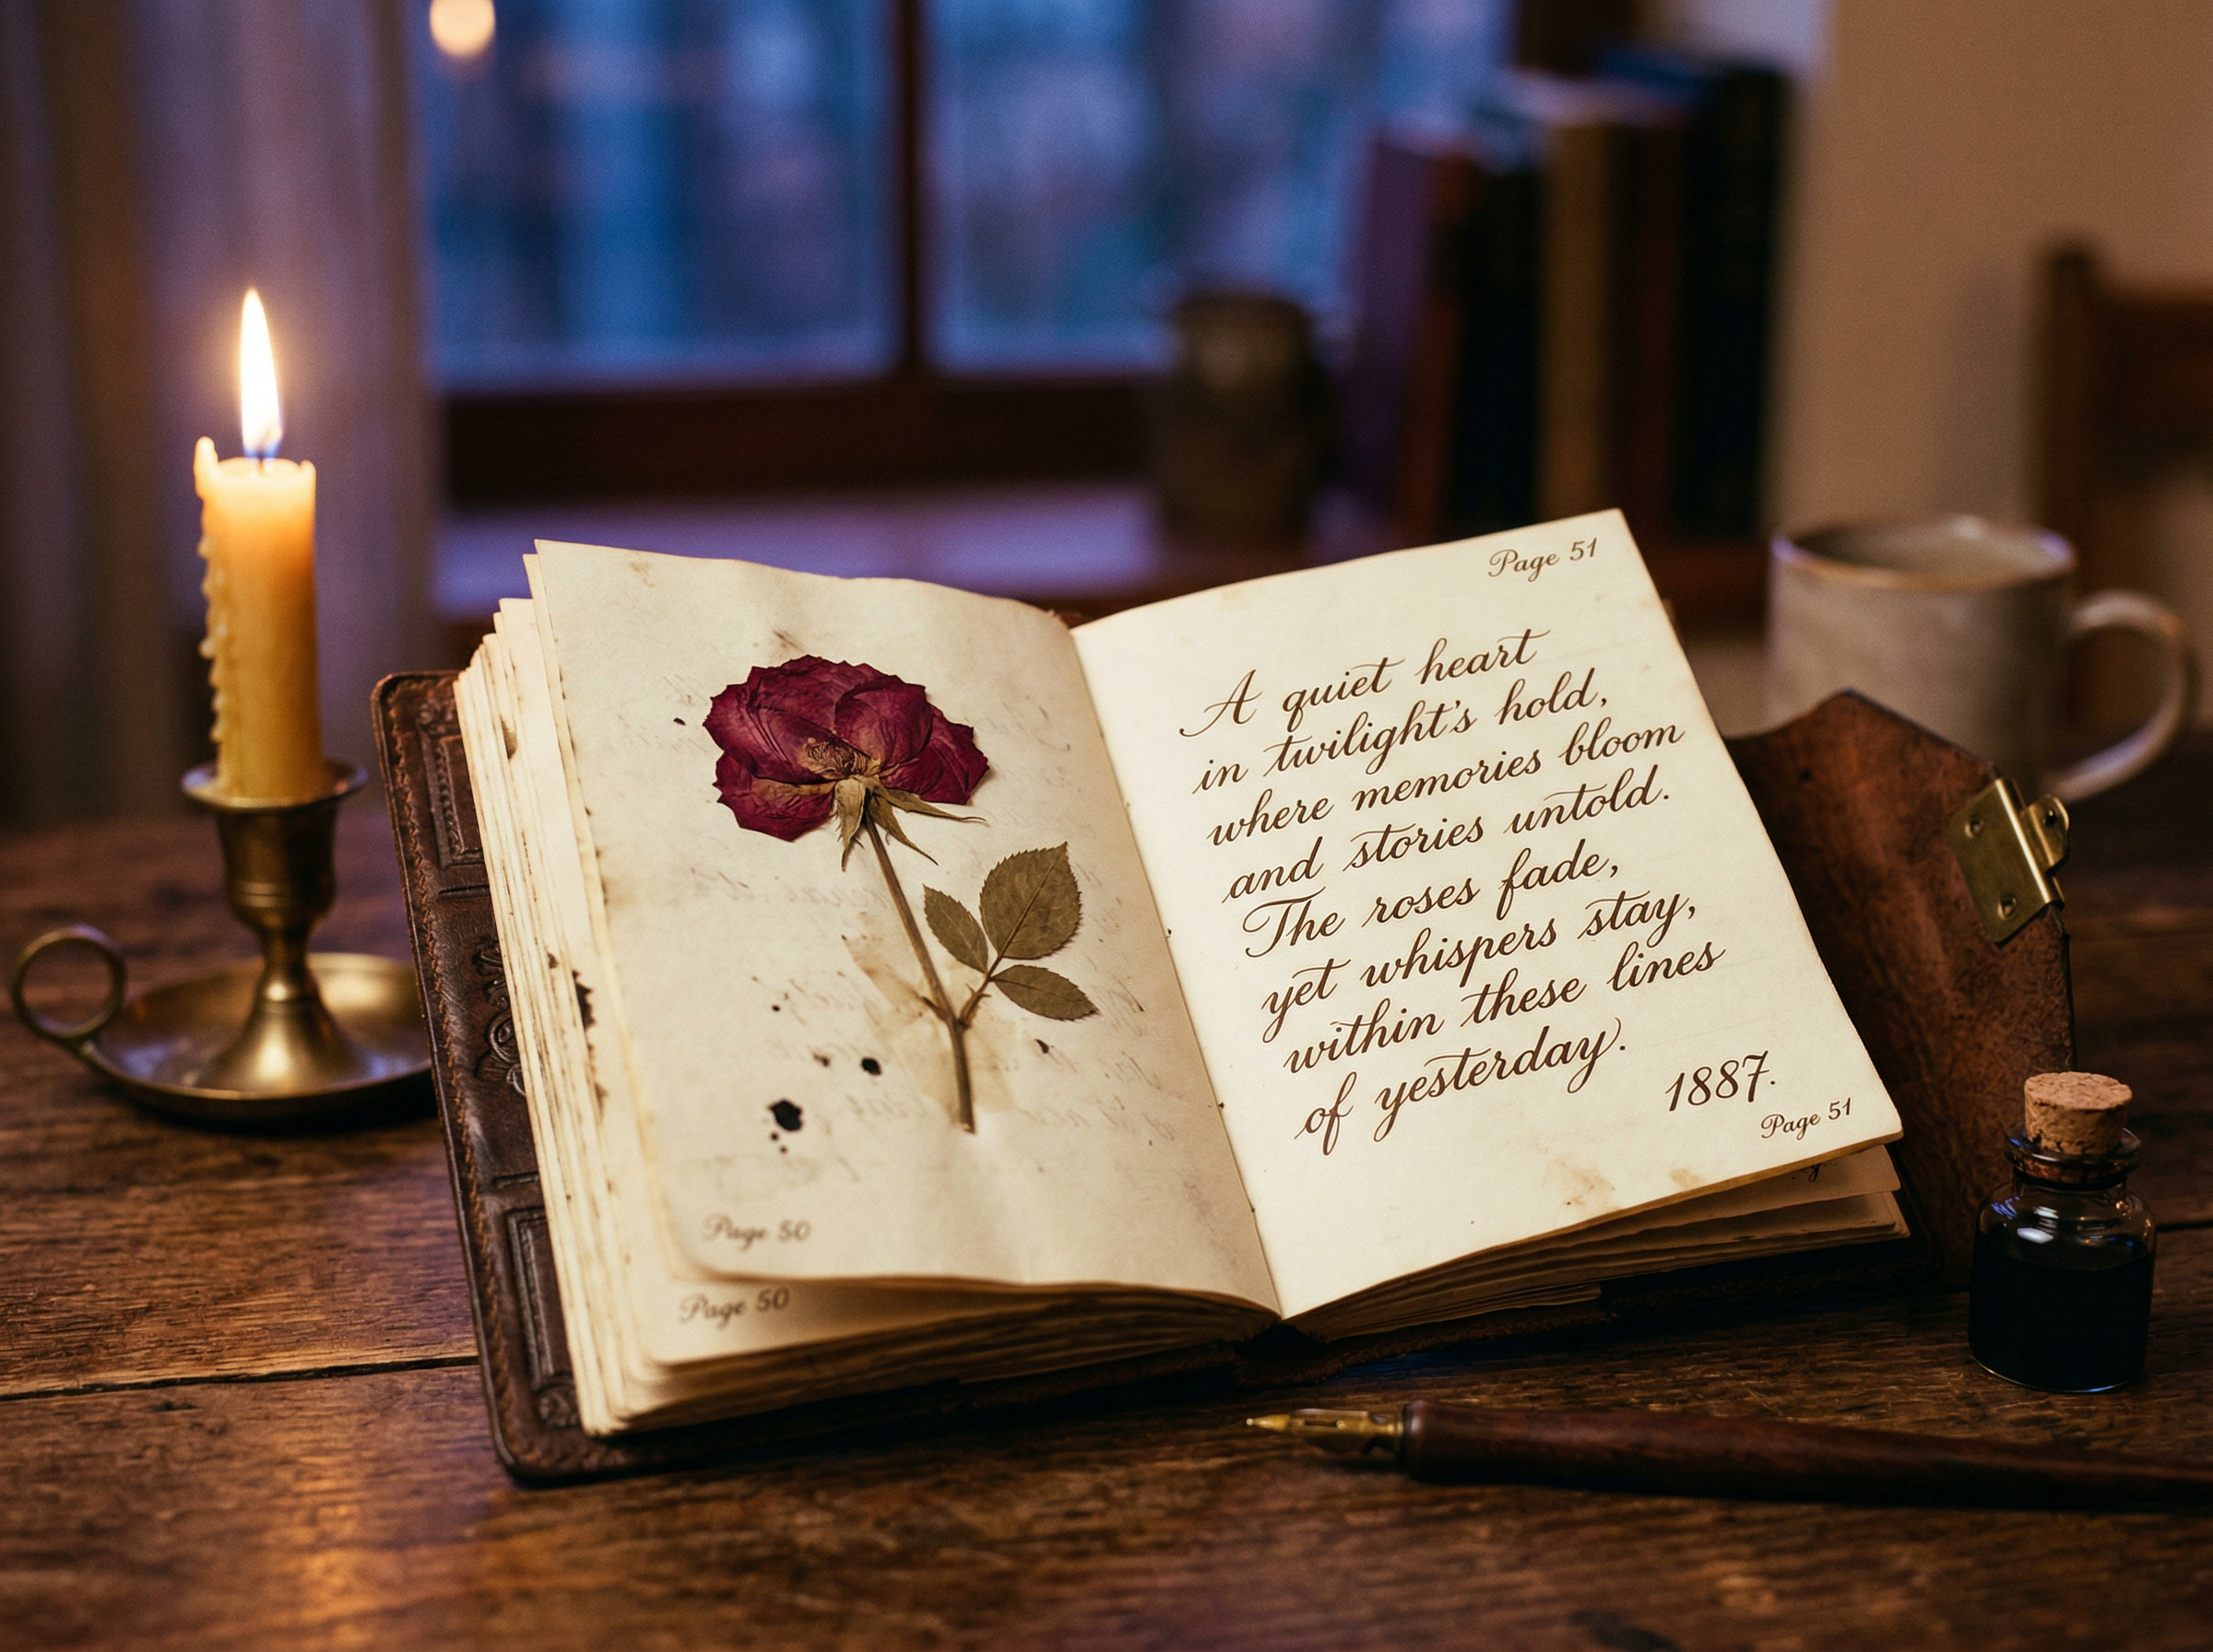 Page 50
Page 50
Page 51
A quiet heart
in twilight's hold,
where memories bloom
and stories untold.
The roses fade,
yet whispers stay,
within these lines
of yesterday.
1887.
Page 51